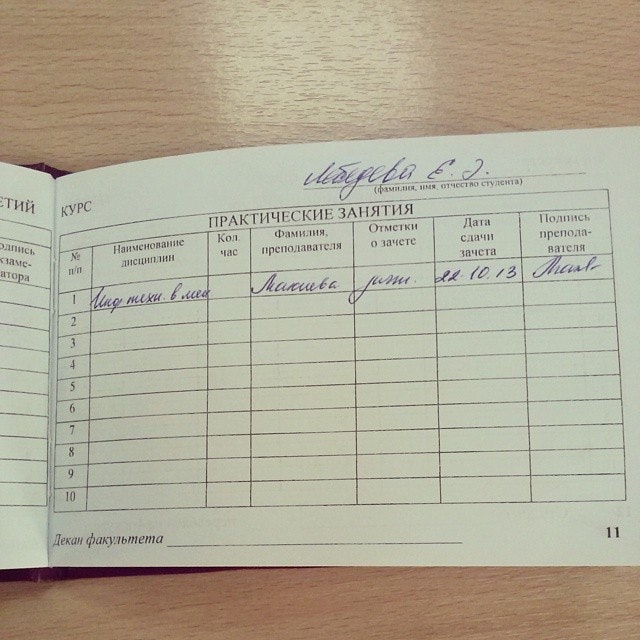 ЕТИЙ
одпись
кзаме-
атора
КУРС
Лебедева Е. Э.
(фамилия, имя, отчество студента)
ПРАКТИЧЕСКИЕ ЗАНЯТИЯ
№ п/п Наименование дисциплин Кол. час Фамилия, преподавателя Отметки о зачете Дата сдачи зачета Подпись препода- вателя
1 Инф техн. в мен Макиева 22.10.13
2
3
4
5
6
7
8
9
10
Декан факультета
11